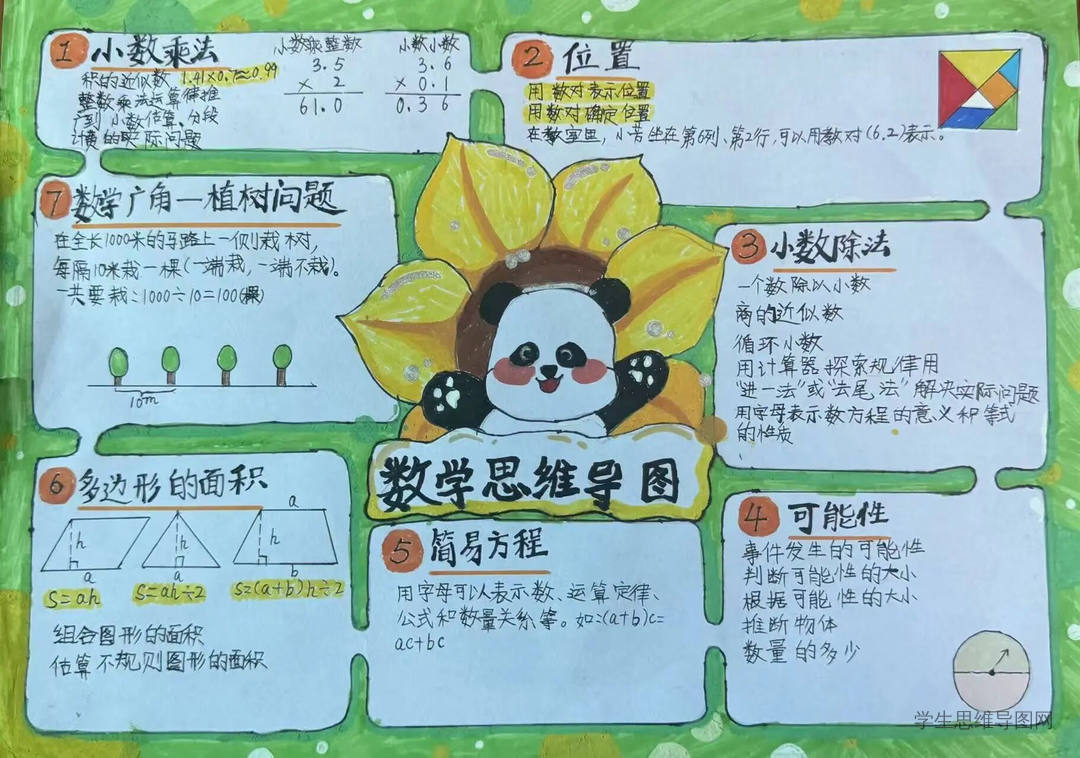 数学思维导图
1 小数乘法
积的近似数 1.41×0.7≈0.99
整数乘法运算律推
广到小数估算、分段
计费的实际问题
小数乘整数
3.5
× 2
61.0
小数小数
3.6
× 0.1
0.36
2 位置
用数对表示位置
用数对确定位置
在教室里，小芳坐在第6列、第2行，可以用数对(6,2)表示。
3 小数除法
一个数除以小数
商的近似数
循环小数
用计算器探索规律用
"进一法"或"去尾法"解决实际问题
用字母表示数方程的意义和等式
的性质
4 可能性
事件发生的可能性
判断可能性的大小
根据可能性的大小
推断物体
数量的多少
5 简易方程
用字母可以表示数、运算定律、
公式和数量关系等。如:(a+b)c=
ac+bc
6 多边形的面积
h
a
S=ah
h
a
S=ah÷2
a
h
b
S=(a+b)h÷2
组合图形的面积
估算不规则图形的面积
7 数学广角—植树问题
在全长1000米的马路上一侧栽树，
每隔10米栽一棵(一端栽，一端不栽)。
一共要栽:1000÷10=100(棵)
10m
学生思维导图网